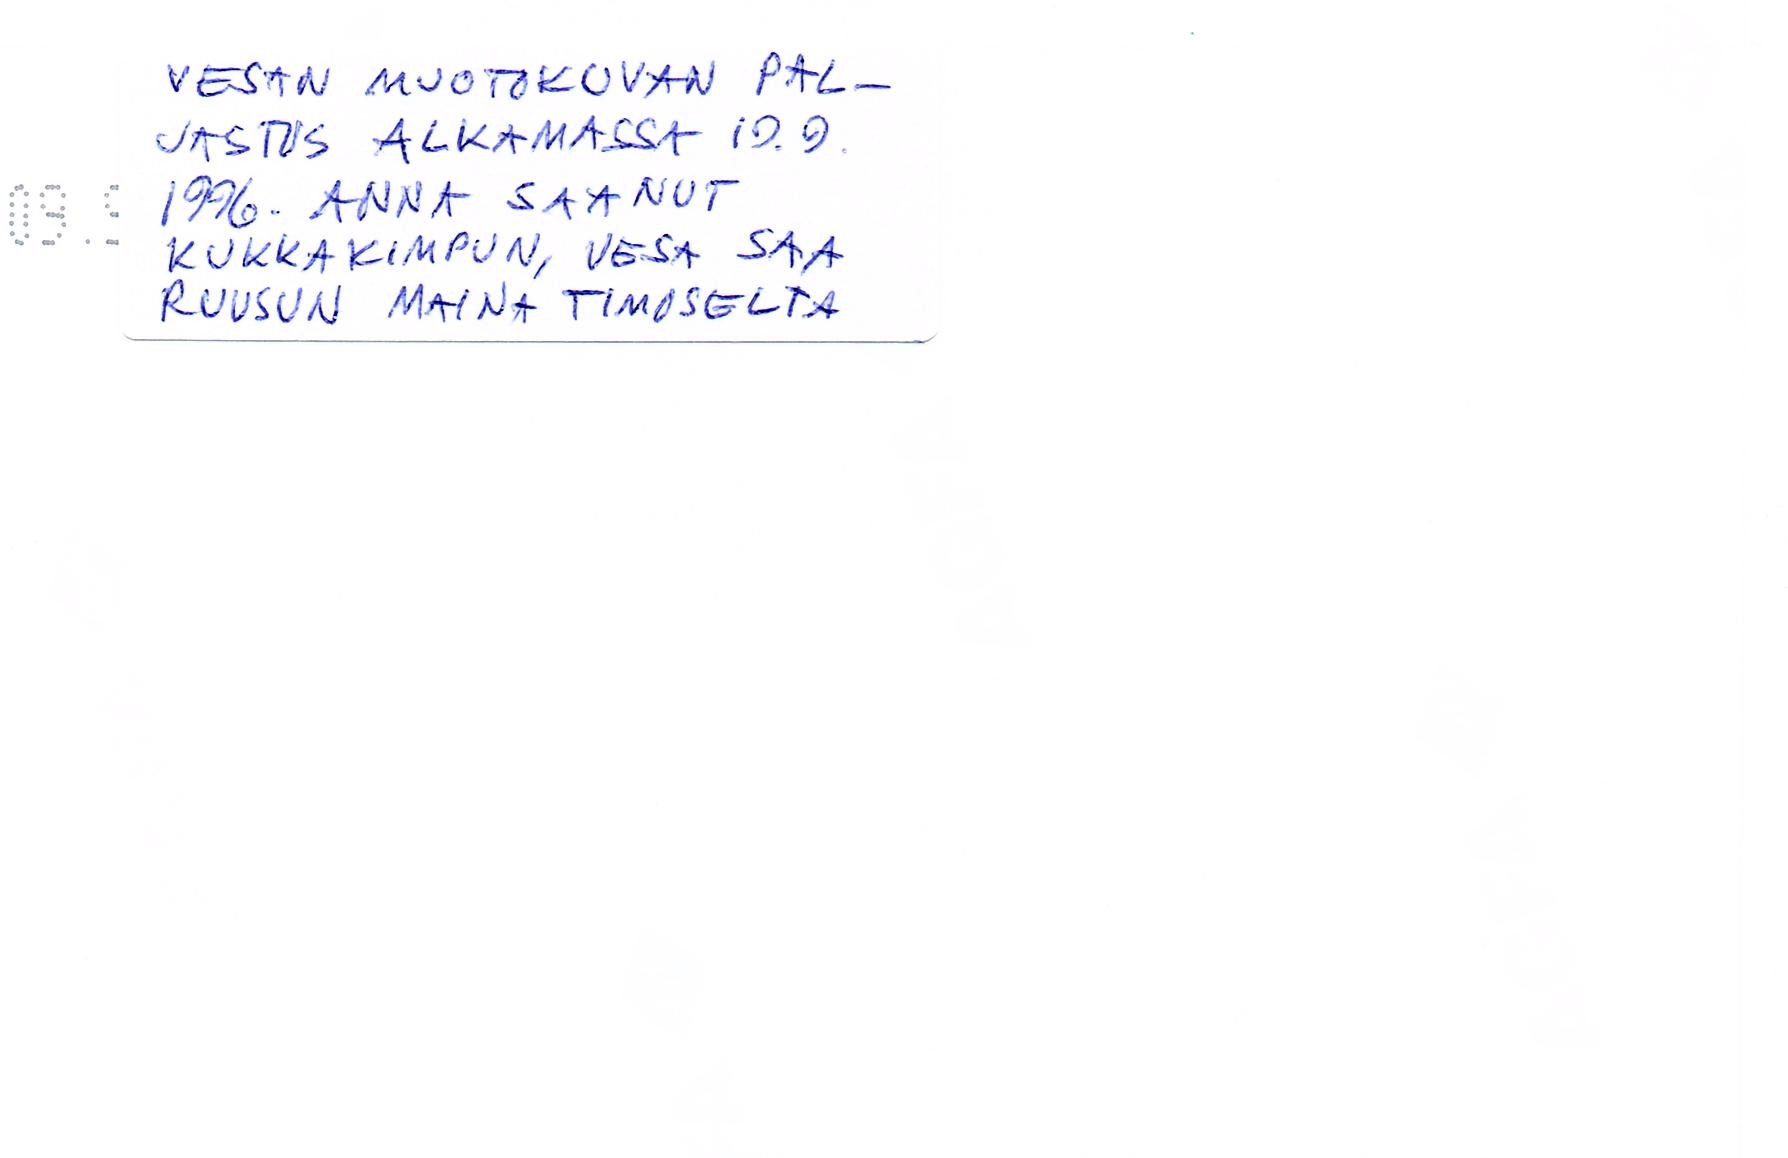 VESAN MUOTOKUVAN PAL-
JASTUS ALKAMASSA 19.9.
1996. ANNA SAANUT
KUKKAKIMPUN, VESA SAA
RUUSUN MAINA TIMOSELTA
09.